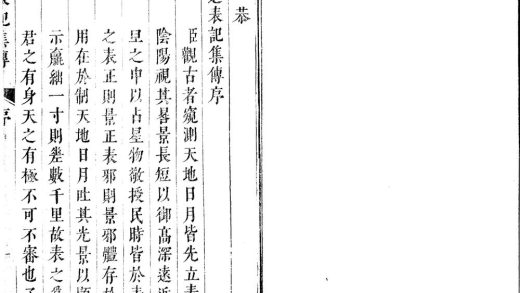 恭
表記集傳序
臣觀古者窺測天地日月皆先立表
陰陽視其晷景長短以御高深遠近
之中以占星物敬授民時皆於表
之表正則景正表邪則景邪體存於
用在於制天地日月吐其光景以
示麤細一寸則幾數千里故表之
君之有身天之有極不可不審也
記集傳
序